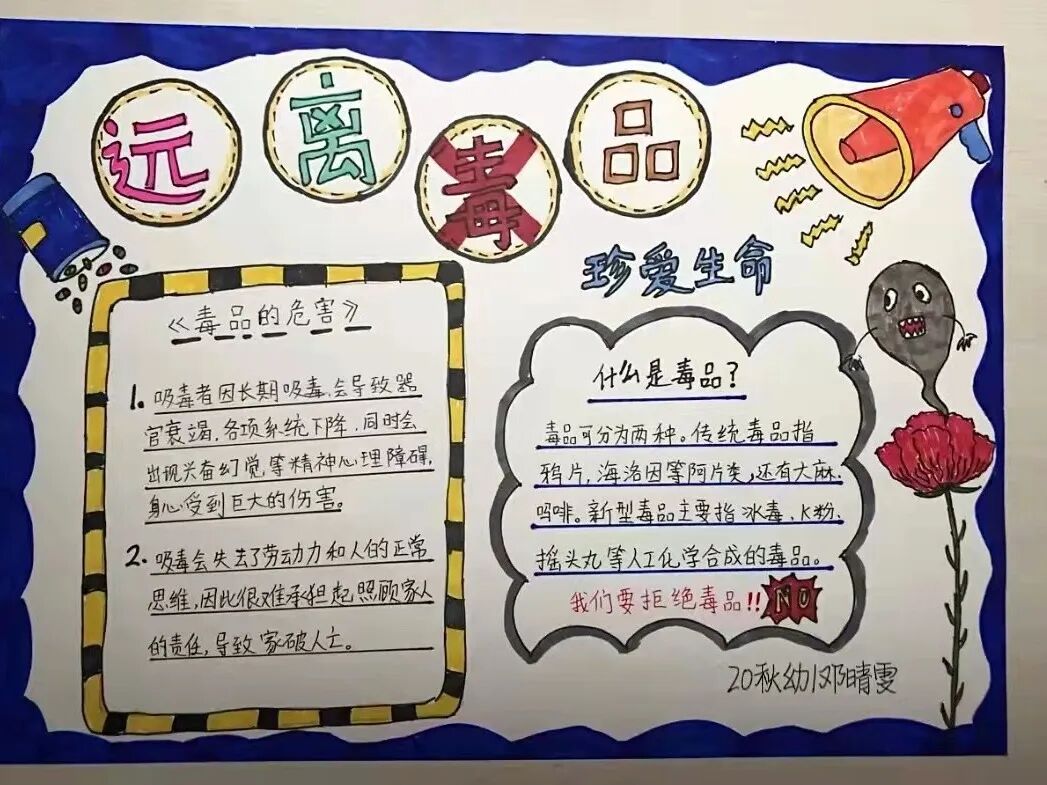 远离毒品
珍爱生命
《毒品的危害》
1. 吸毒者因长期吸毒,会导致器
官衰竭,各项系统下降,同时会
出现兴奋幻觉,等精神心理障碍,
身心受到巨大的伤害。
2. 吸毒会失去了劳动力和人的正常
思维,因此很难承担起照顾家人
的责任,导致家破人亡。
什么是毒品?
毒品可分为两种。传统毒品指
鸦片,海洛因等阿片类,还有大麻.
吗啡。新型毒品主要指冰毒、K粉、
摇头丸等人工化学合成的毒品。
我们要拒绝毒品!! NO
20秋幼1邓晴雯